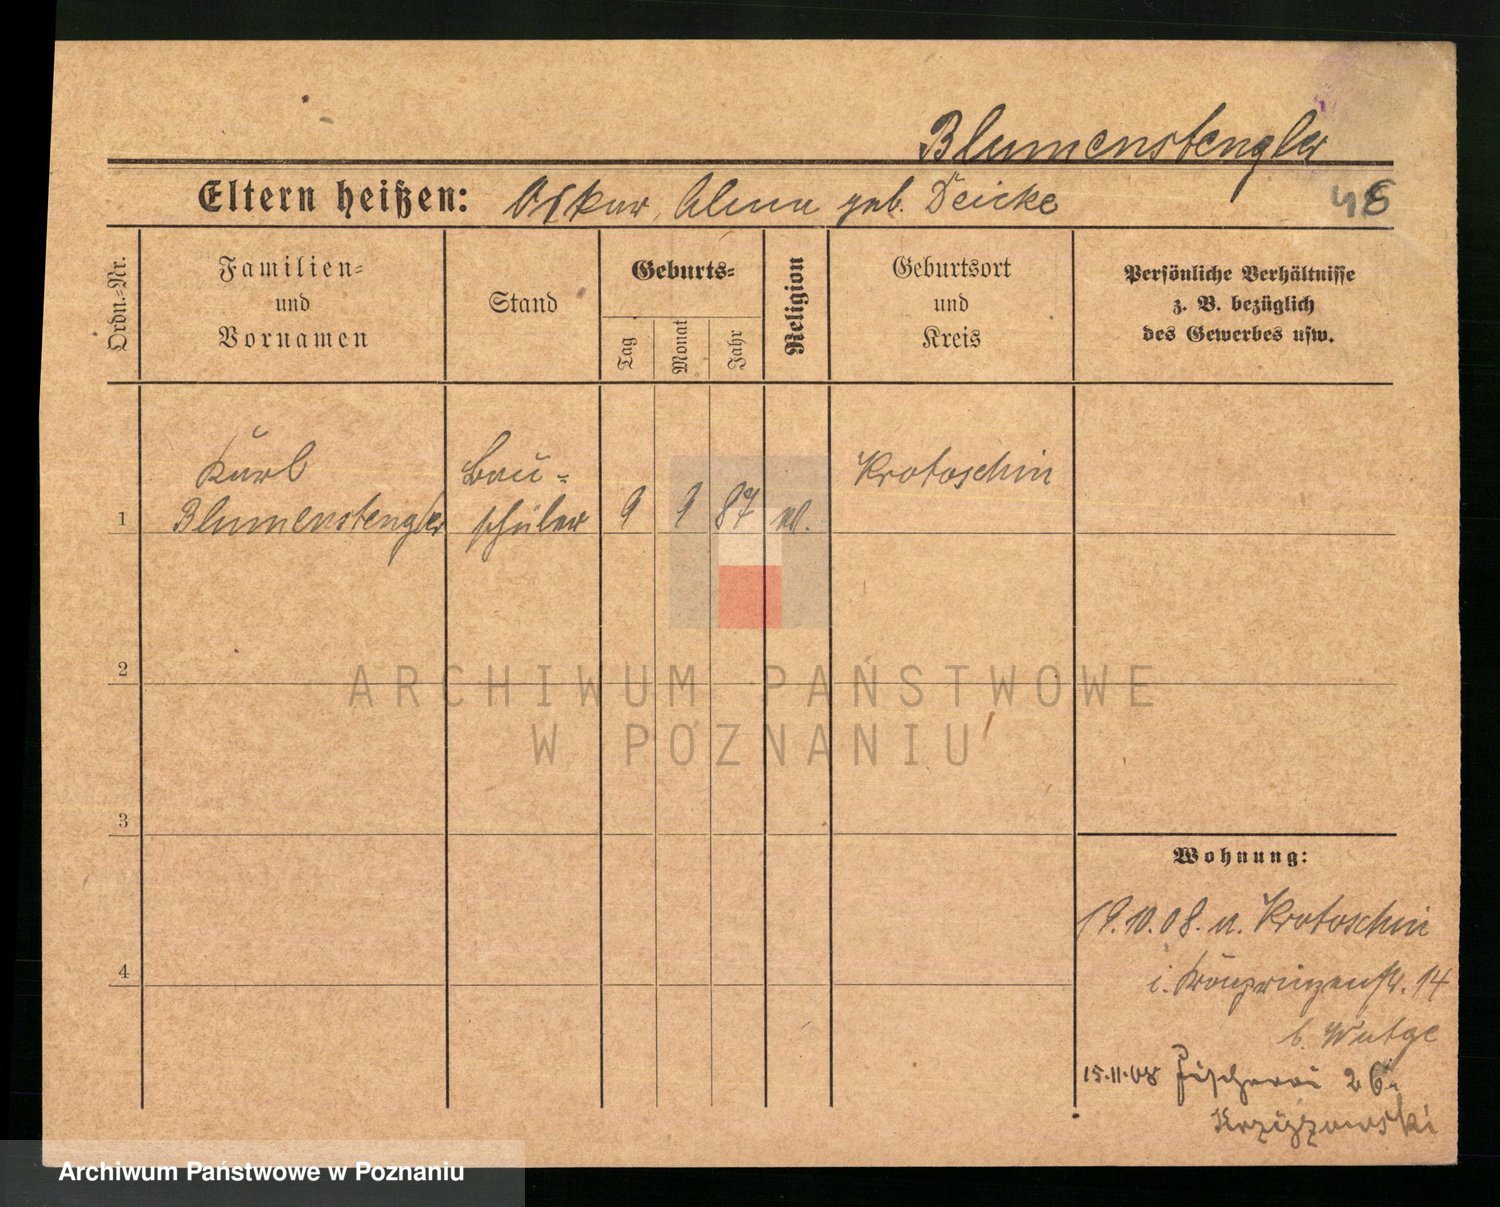 Blumenstengler
Eltern heißen: Oskar, Alma geb. Deicke
48
Ordn.-Nr.
Familien- und Vornamen
Stand
Geburts-
Tag
Monat
Jahr
Religion
Geburtsort und Kreis
Persönliche Verhältnisse
z. B. bezüglich
des Gewerbes usw.
1
Karl
Blumenstengler
Bau-
schüler
9 9 87
Krotoschin
2
3
4
ARCHIWUM PAŃSTWOWE
W POZNANIU
Wohnung:
19.10.08. v. Krotoschin
i. Kronprinzenstr. 14
b.
15.11.08 Fischerei 26
Archiwum Państwowe w Poznaniu